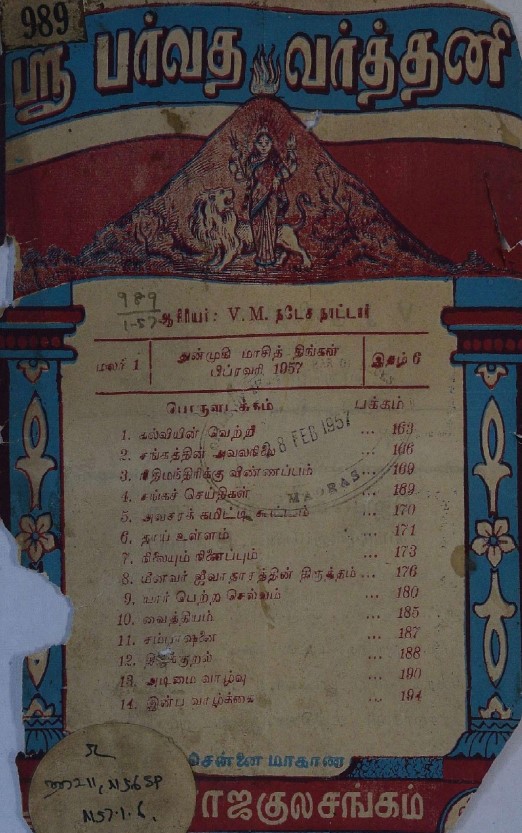 989
ஸ்ரீ பர்வத வர்த்தனி
989
1-57
ஆசிரியர்: V. M. நடேச நாட்டார்
மலர் 1
துன்முகி மாசித் திங்கள்
பிப்ரவரி 1957
இதழ் 6
பொருளடக்கம் பக்கம்
1. கல்வியின் வெற்றி ... 163
2. சங்கத்தின் அவலநிலை ... 166
3. நிதிமந்திரிக்கு விண்ணப்பம் ... 169
4. சங்கச் செய்திகள் ... 169
5. அவசரக் கமிட்டி கூட்டம் ... 170
6. தாய் உள்ளம் ... 171
7. நிலையும் நினைப்பும் ... 173
8. மீனவர் ஜீவாதாரத்தின் நிருத்தம் ... 176
9. யார் பெற்ற செல்வம் ... 180
10. வைத்தியம் ... 185
11. சம்பாஷனை ... 187
12. நிஜக்குறல் ... 188
13. அடிமை வாழ்வு ... 190
14. இன்ப வாழ்க்கை ... 194
8 FEB 1957
MADRAS
சென்னை மாகாண
ராஜகுலசங்கம்
N57.1.6.